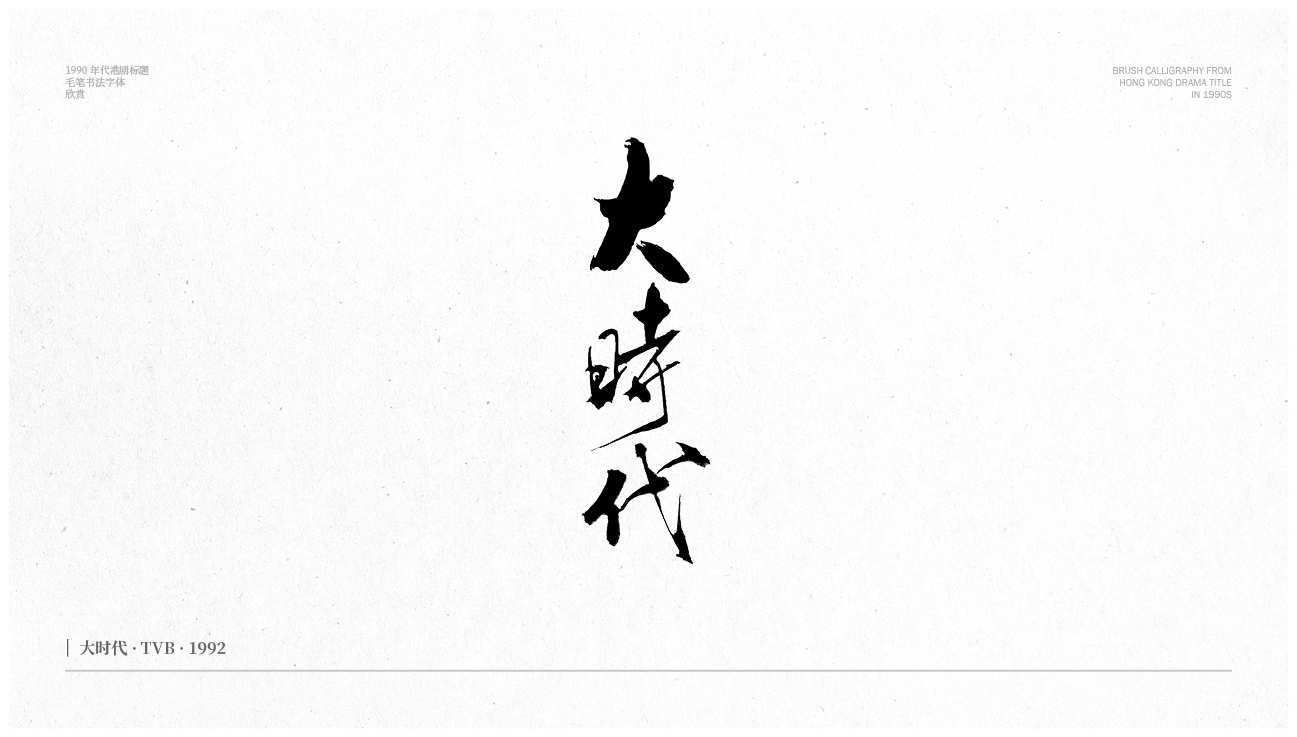 1990 年代港剧标题
毛笔书法字体
欣赏
BRUSH CALLIGRAPHY FROM
HONG KONG DRAMA TITLE
IN 1990S
大
時
代
大时代 · TVB · 1992